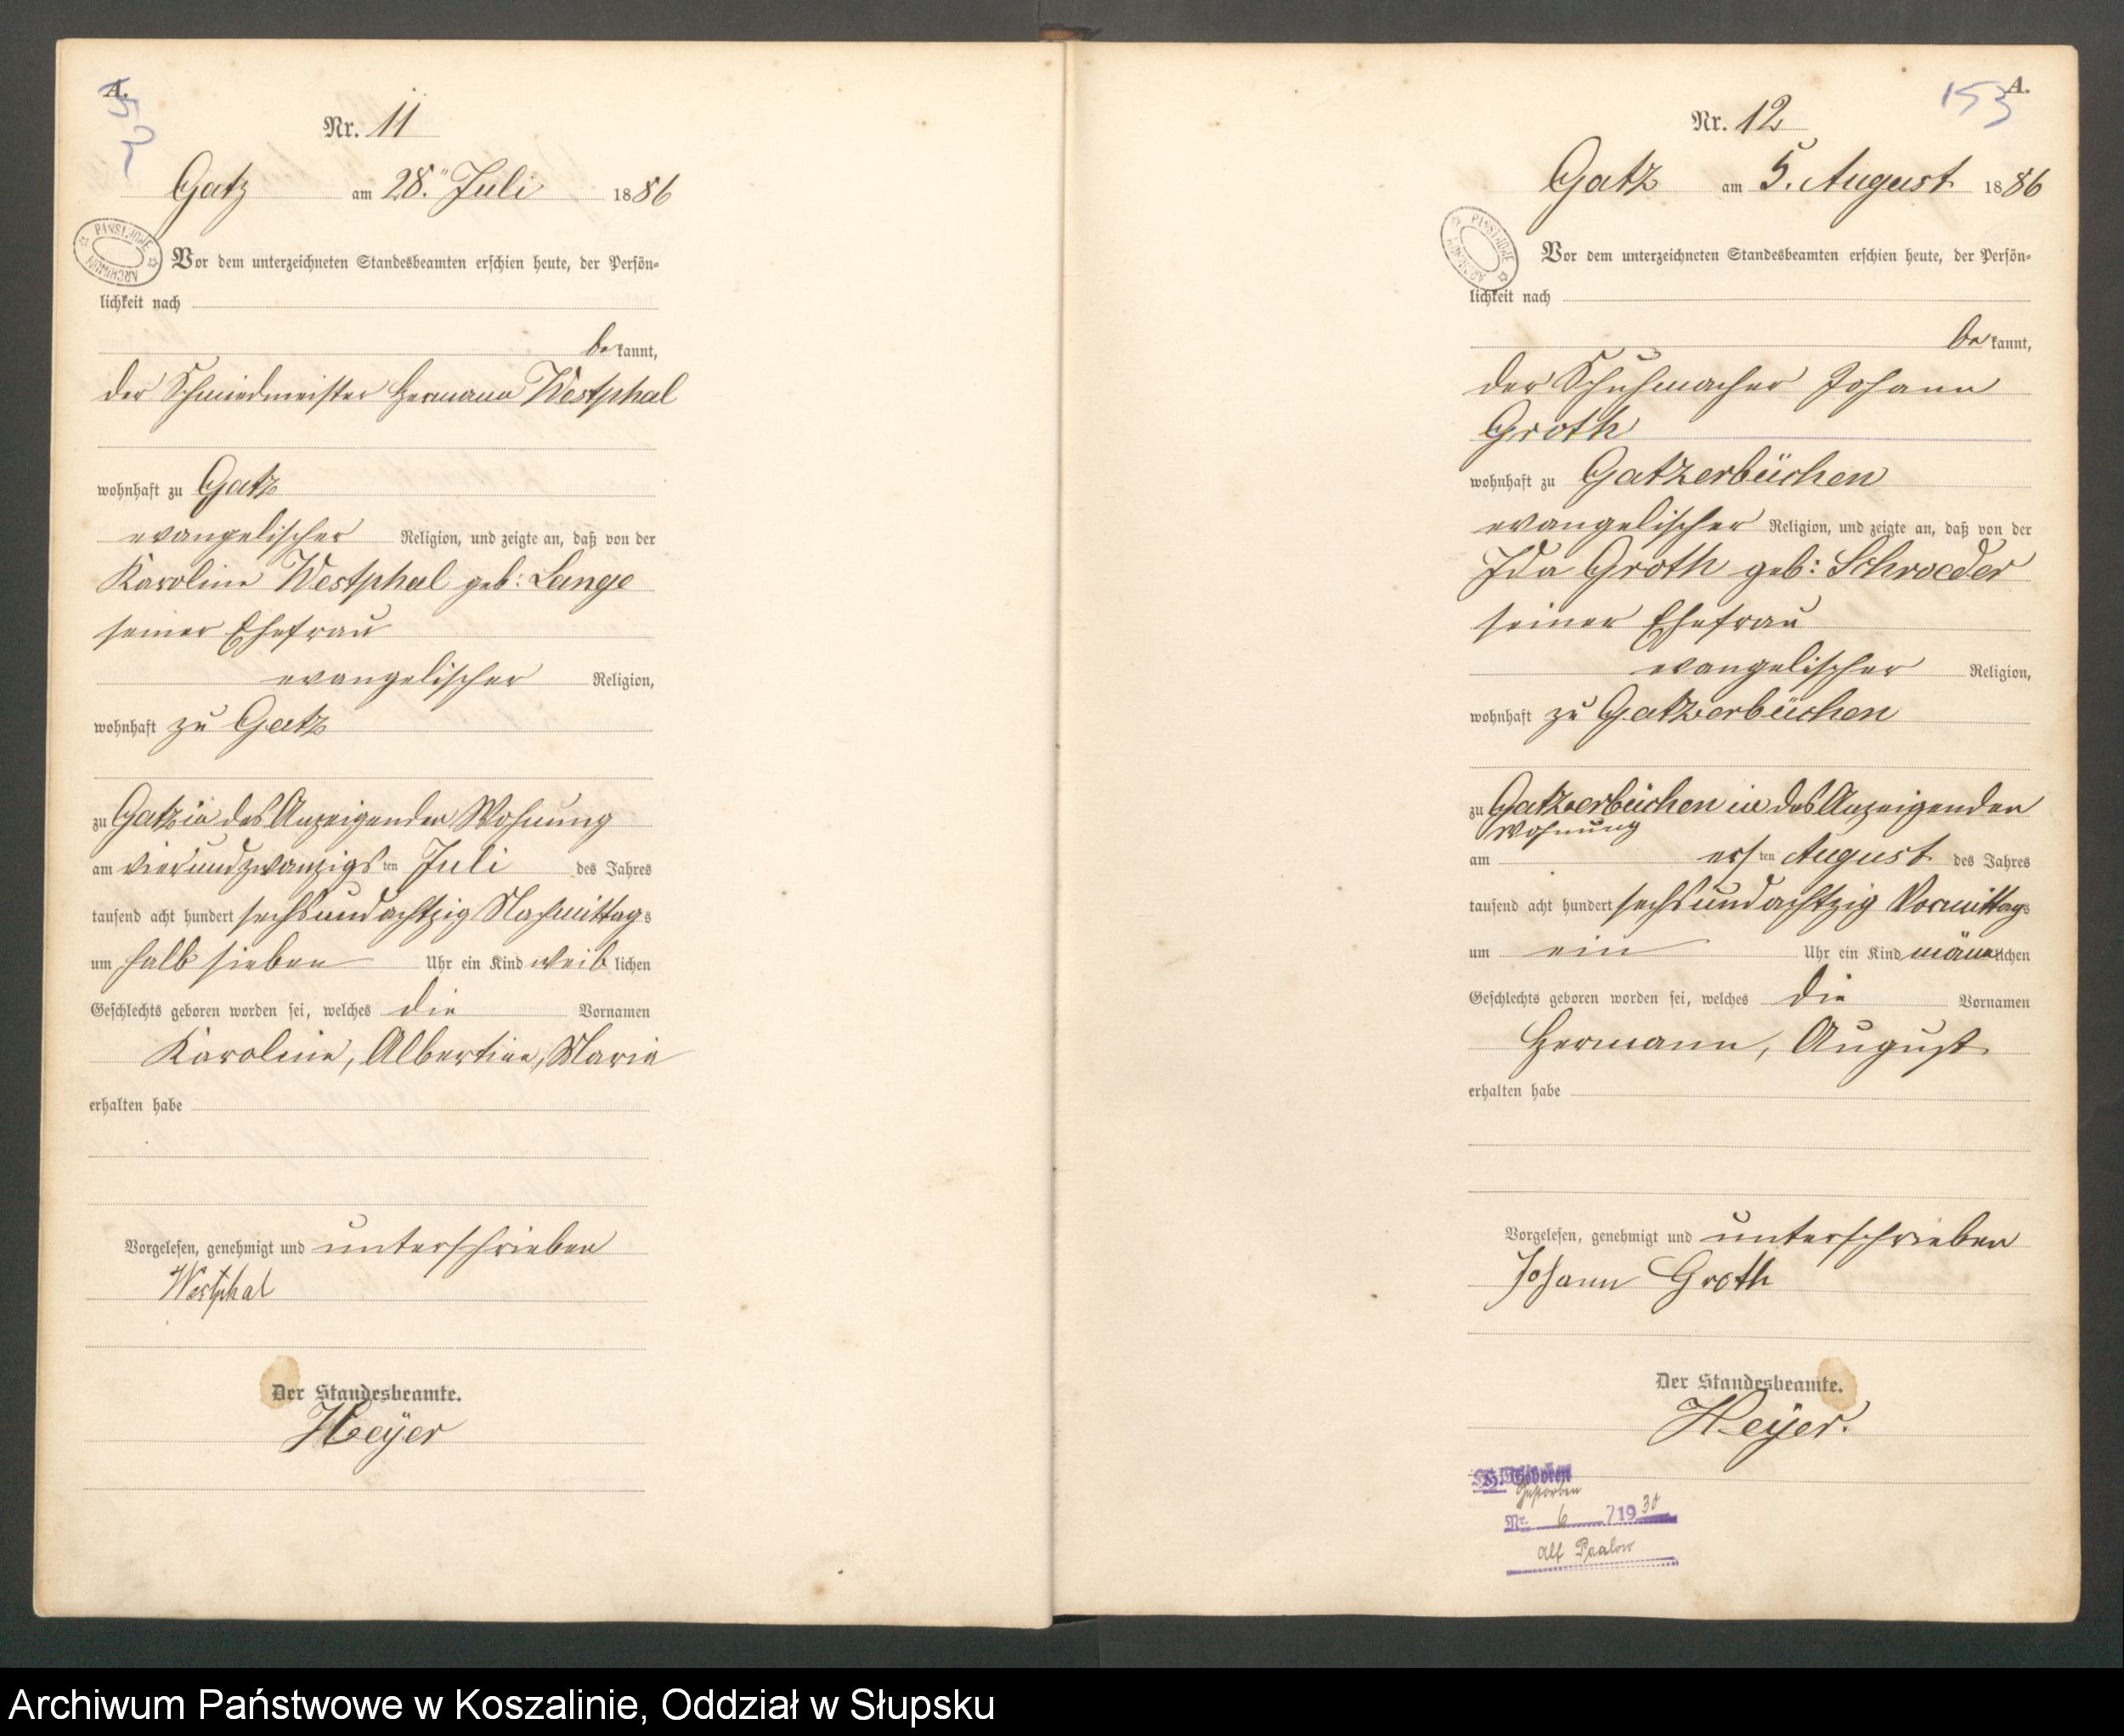 A.
152
Nr. 11
Gatz am 28. Juli 1886
PAŃSTWOWE ARCHIWUM
Vor dem unterzeichneten Standesbeamten erschien heute, der Persön=
lichkeit nach
be kannt,
der Schmiedmeister Hermann Westphal
wohnhaft zu Gatz
evangelischer Religion, und zeigte an, daß von der
Karoline Westphal geb: Lange
seiner Ehefrau
evangelischer Religion,
wohnhaft zu Gatz
zu Gatz in des Anzeigenden Wohnung
am vierundzwanzigs ten Juli des Jahres
tausend acht hundert sechsundachtzig Nachmittags
um halb sieben Uhr ein Kind weib lichen
Geschlechts geboren worden sei, welches die Vornamen
Karoline, Albertine, Marie
erhalten habe
Vorgelesen, genehmigt und unterschrieben
Westphal
Der Standesbeamte.
Heÿer
A.
153
Nr. 12
Gatz am 5. August 1886
PAŃSTWOWE ARCHIWUM
Vor dem unterzeichneten Standesbeamten erschien heute, der Persön=
lichkeit nach
be kannt,
der Schuhmacher Johann
Groth
wohnhaft zu Gatzerbüchen
evangelischer Religion, und zeigte an, daß von der
Ida Groth geb: Schroeder
seiner Ehefrau
evangelischer Religion,
wohnhaft zu Gatzerbüchen
zu Gatzerbüchen in des Anzeigenden
Wohnung
am ers ten August des Jahres
tausend acht hundert sechsundachtzig Vormittags
um ein Uhr ein Kind männlichen
Geschlechts geboren worden sei, welches die Vornamen
Hermann, August
erhalten habe
Vorgelesen, genehmigt und unterschrieben
Johann Groth
Der Standesbeamte.
Heÿer.
Geboren
Gestorben
Nr. 6 /1930
Alt Paalow
Archiwum Państwowe w Koszalinie, Oddział w Słupsku